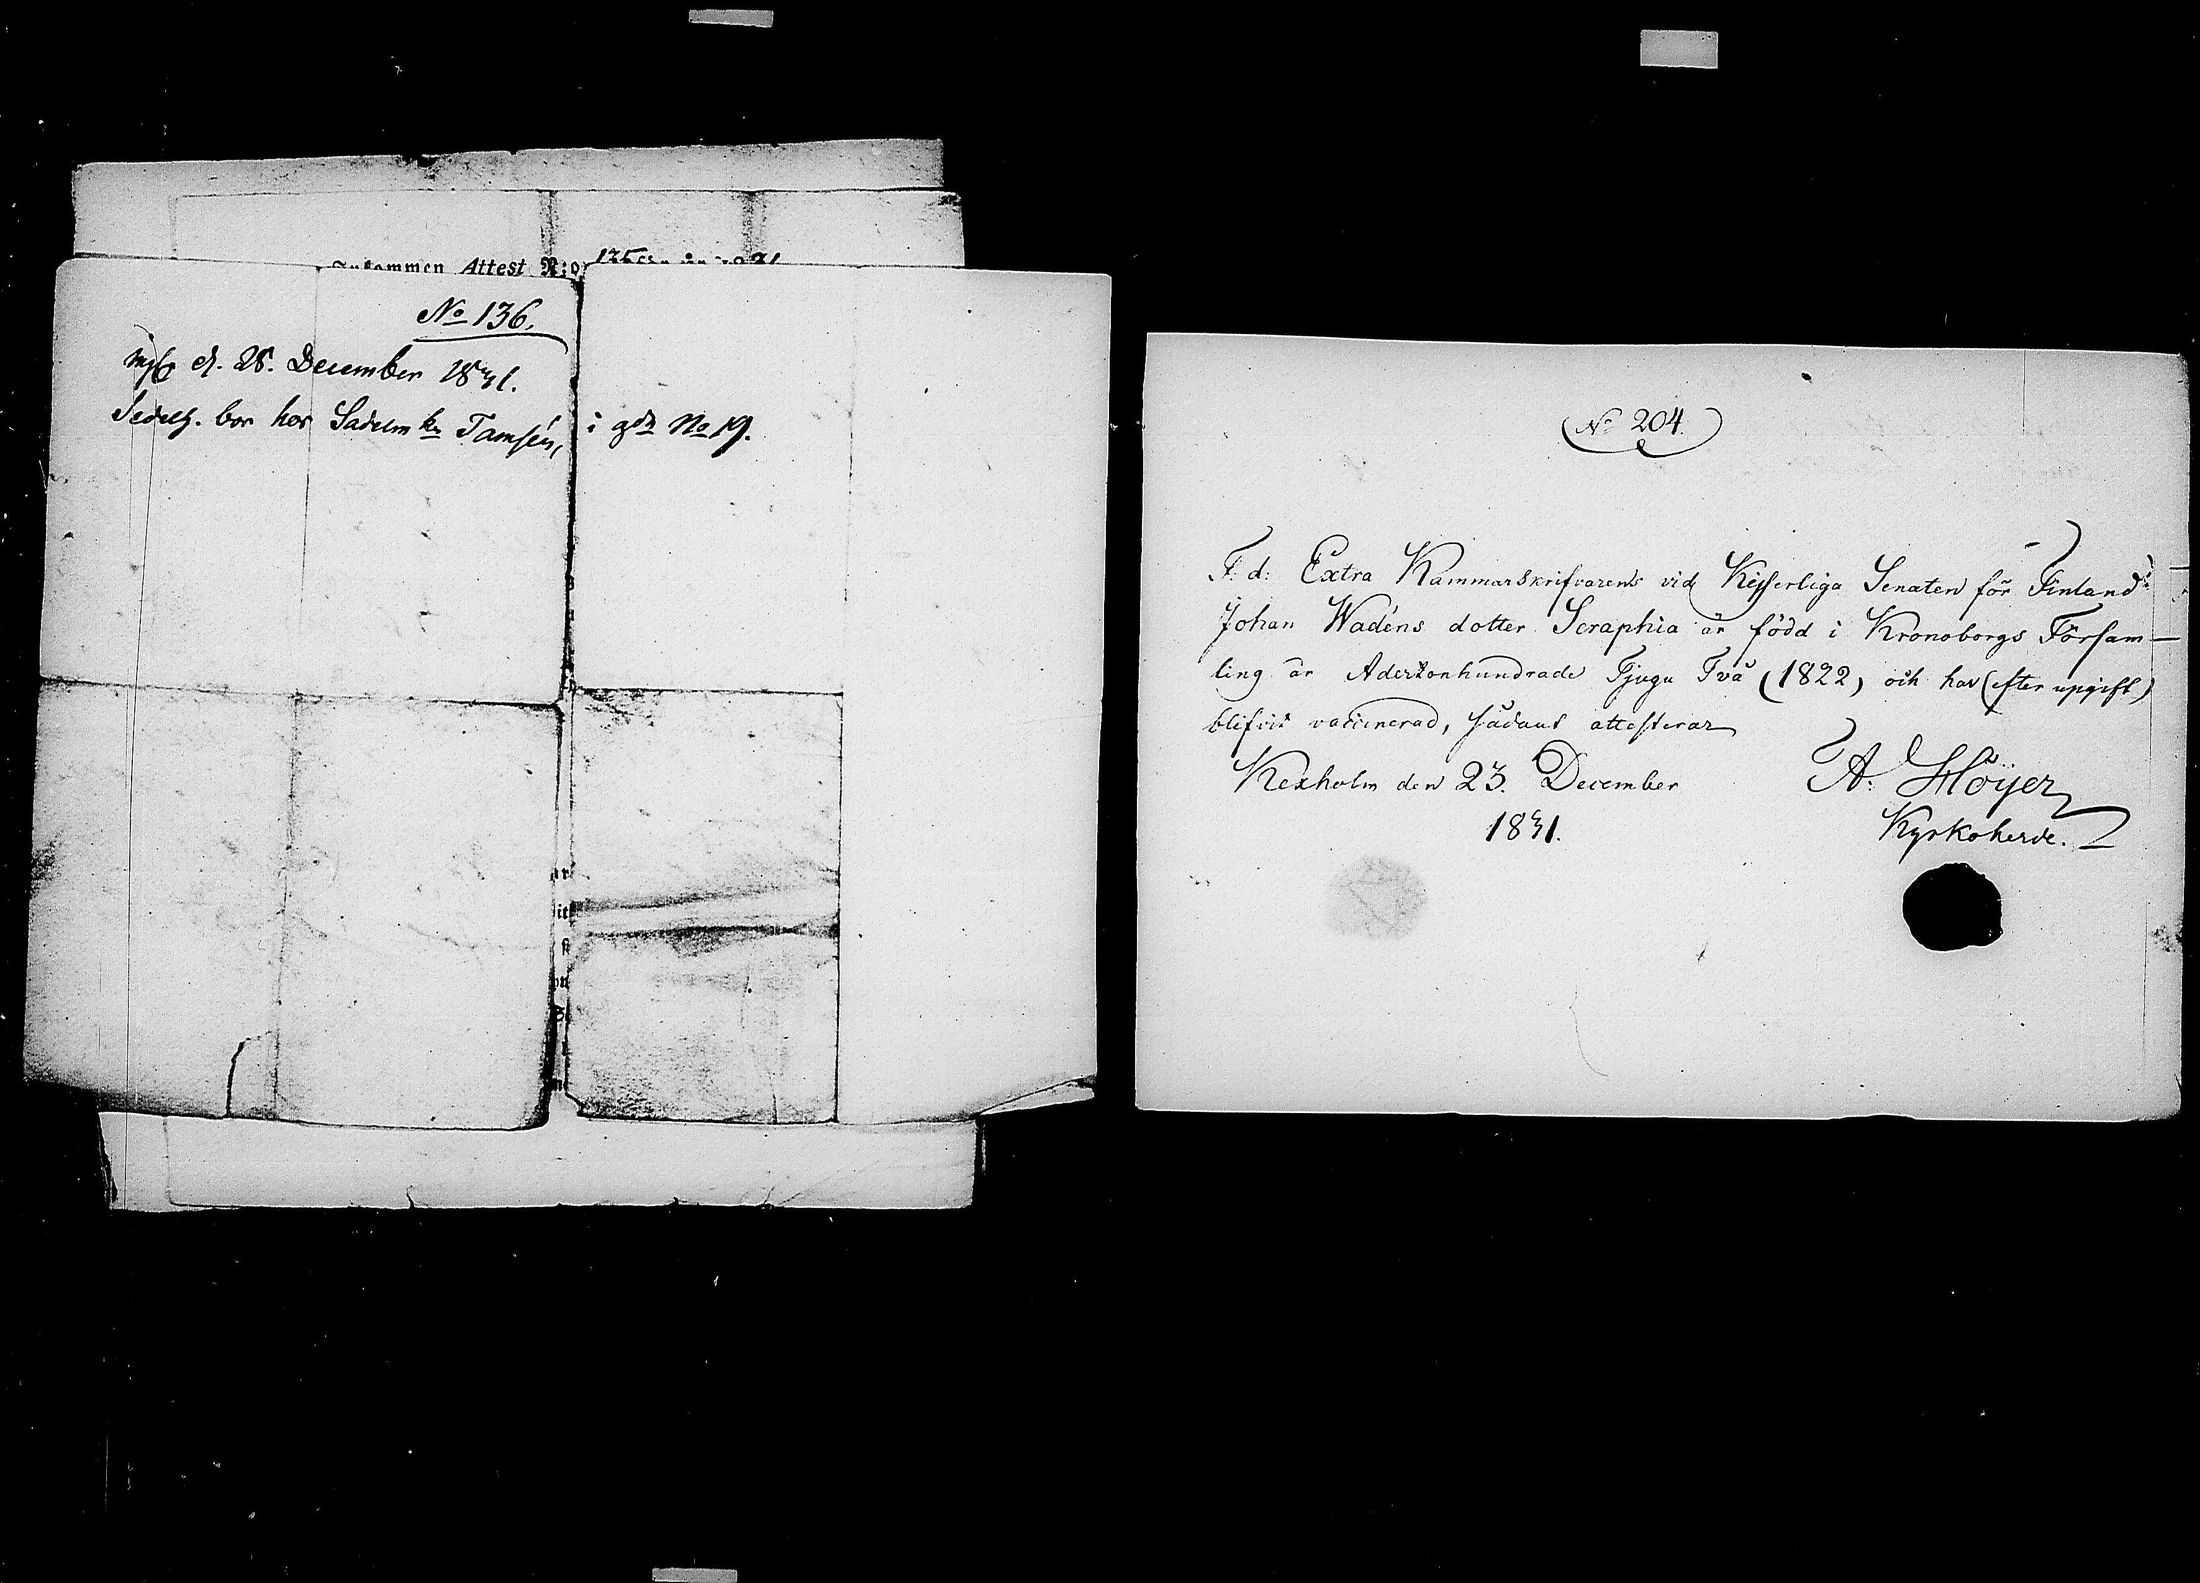 Inkommen Attest N:o 135 för år 1831
No 136.
d. 28. December 1831.
Sedelh. bor hos Sadelm kn Tamsén, i gdn No 19.
No 204.
F. d: Extra Kammarskrifvarens vid Kejserliga Senaten för Finland
Johan Wadéns dotter Seraphia är född i Kronoborgs Försam-
ling år Adertonhundrade Tjugu Två (1822) och har (efter upgift)
blifvit vaccinerad, sådant attesterar
Kexholm den 23. December
1831.
A. Höijer
Kyrkoherde.